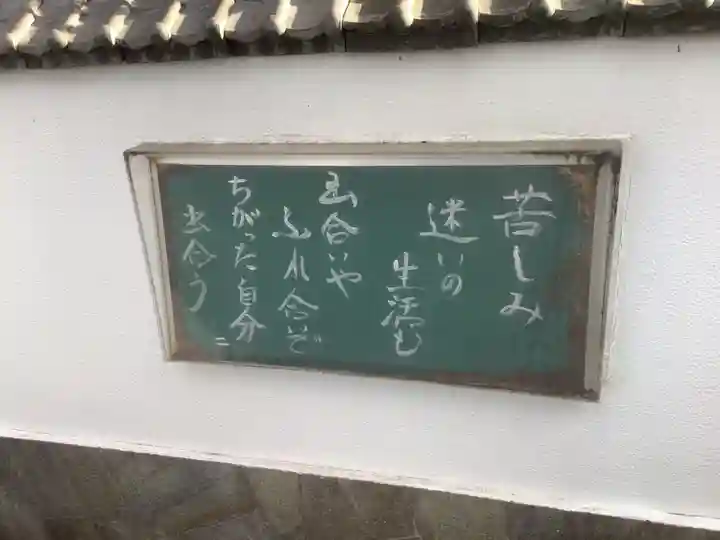 苦しみ
迷いの
生活も
出合いや
ふれ合いで
ちがった自分に
出合う